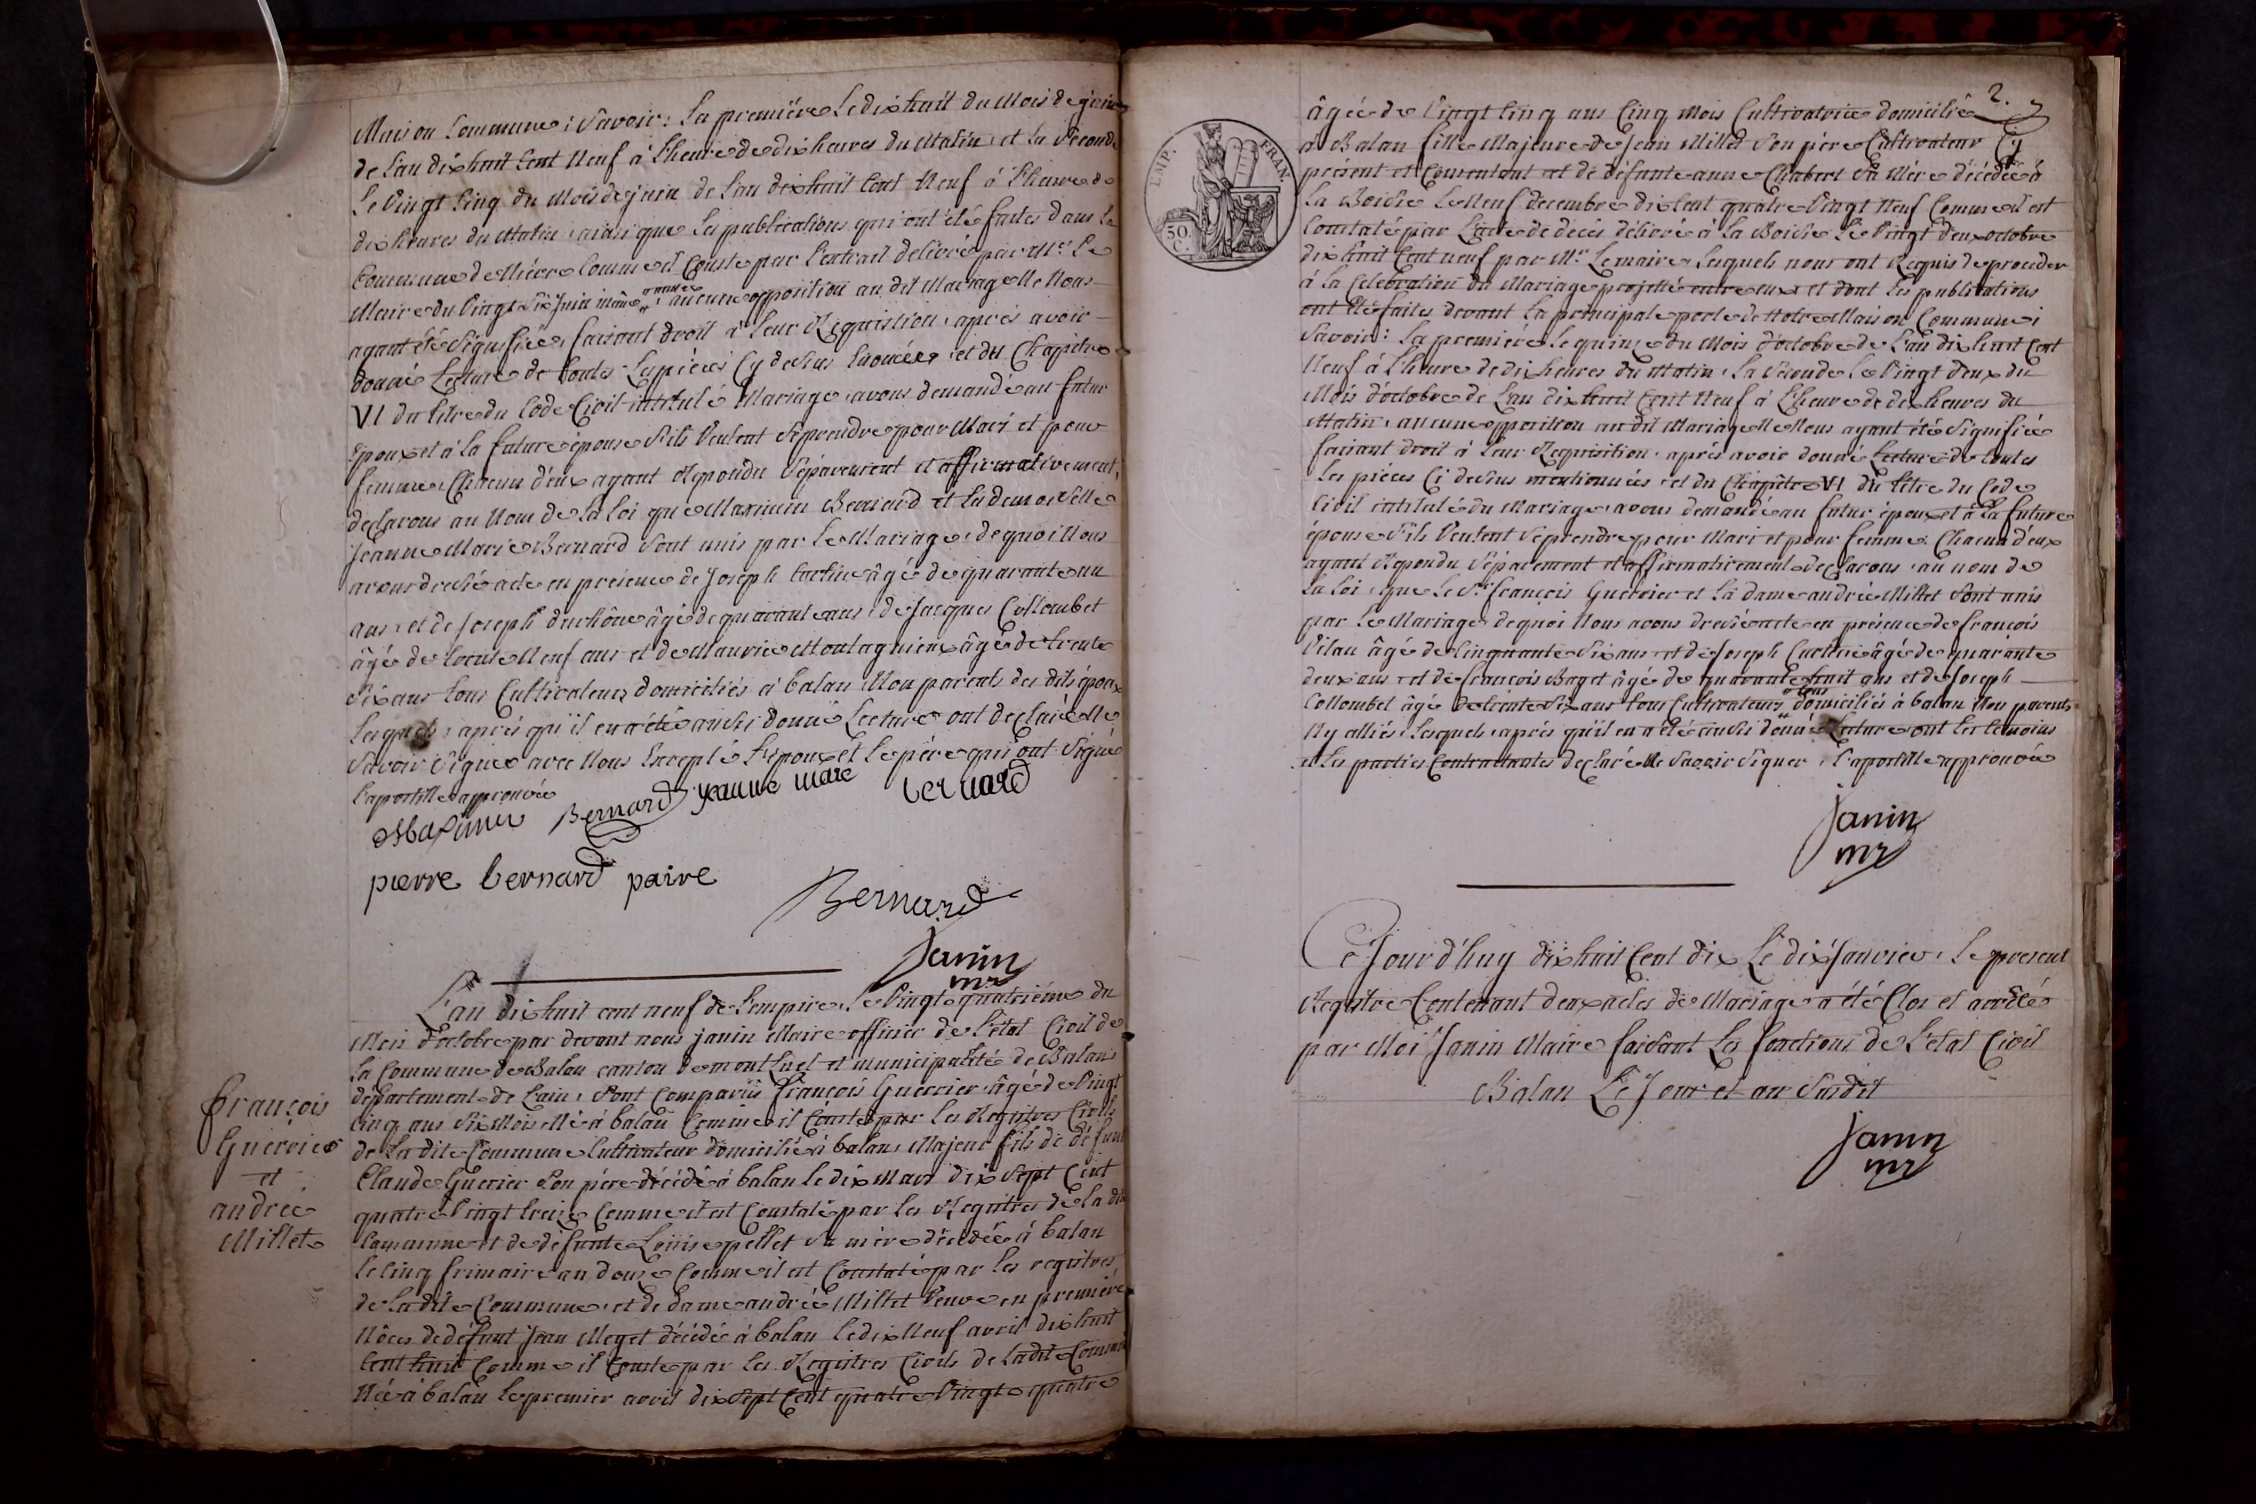 Maison Commune; Savoir: la première Le dix huit du Mois de juin
de L'an dix huit Cent Neuf à l'heure de dix heures du Matin, et la Seconde
Le Vingt Cinq du Mois de juin de L'an dix huit Cent Neuf à l'heure de
dix heures du Matin, ainsi que Les publications qui ont été faites dans la
Commune de Comme il Conste par L'extrait delivré par Mr. Le
Maire du Vingt Six Juin même année, aucune opposition au dit Mariage Ne Nous
ayant été Signifiée, faisant droit à Leur Réquisition, après avoir
donné Lecture de toutes Les pièces Cy dessus Enoncées, et du Chapitre
VI du titre du Code Civil intitulé Mariage, avons demandé au futur
Epoux et à la future épouse S'ils Veulent Se prendre pour Mari et pour
femme, Chacun d'eux ayant Repondu Séparement et affirmativement,
declarons au Nom de la Loi que Maximin Bernard et La demoiselle
Jeanne Marie Bernard Sont unis par le Mariage, de quoi Nous
avons dressé acte en présence de Joseph âgé de quarante un
ans, et de Joseph duchêne âgé de quarante ans, de Jacques Collombet
âgé de trente Neuf ans et de Maurice Montagnieux âgé de trente
Six ans tous Cultivateurs domiciliés à balan Non parents des dits époux
Lesquels, après qu'il en a été aussi donné Lecture ont declaré Ne
Savoir Signer avec Nous Excepté L'époux et le père qui ont Signé
L'apostille approuvée
Maximin Bernard jeanne marie bernard
pierre bernard paire
Bernard
Janin
mre
L'an dix huit cent neuf de l'empire, Le Vingt quatrième du
Mois d'octobre par devant nous janin Maire officier de l'état Civil de
la Commune de Balan canton de montluel et municipalité de Balan
département de L'ain, Sont Comparüs François Guerrier âgé de Vingt
Cinq ans Six Mois Né à balan Comme il Conste par les Registres Civils
de La dite Commune Cultivateur domicilié à balan, Majeur fils de défunt
Claude Guerrier Son père décédé à balan le dix Mars dix Sept Cent
quatre Vingt treize Comme il est Constaté par les Registres de la dite
Commune et de défunte Loüise pellet Sa mère décédée à balan
le Cinq frimaire an douze Comme il est Constaté par les registres
de La dite Commune, et de dame andrée Millet Veuve en première
Nôces de défunt Jean Meget décédé à balan Le dix Neuf avril dix huit
Cent huit Comme il Conste par les Registres Civils de La dite Commune
Née à balan le premier avril dix Sept Cent quatre Vingt quatre
François
Guerrier
et
andrée
Millet
2.
EMP. FRAN.
50.
C.
âgée de Vingt Cinq ans Cinq Mois Cultivatrice domiciliée
à Balan fille Majeure de Jean Millet Son père Cultivateur Cy
présent et Consentant et de défunte anne Chabert Sa Mère décédée à
La Boisse Le Neuf decembre dix Cent quatre Vingt Neuf Comme il est
Constaté par L'acte de décès délivré à La Boisse Le Vingt deux octobre
dix huit Cent neuf par Mr. Le maire, Lesquels nous ont Requis de proceder
à la Célébration du Mariage projetté entre eux et dont les publications
ont été faites devant La principale porte de Notre Maison Commune;
Savoir: La première Le quinze du Mois d'octobre de L'an dix huit Cent
Neuf à L'heure de dix heures du Matin, la Seconde Le Vingt deux du
Mois d'octobre de L'an dix huit Cent Neuf à L'heure de dix heures du
Matin, aucune opposition au dit Mariage Ne Nous ayant été Signifiée
faisant droit à Leur Requisition, après avoir donné Lecture de toutes
Les pièces Ci dessus mentionnées, et du Chapitre VI du titre du Code
Civil intitulé du Mariage, avons demandé au futur époux et à La future
épouse S'ils Veulent Se prendre pour Mari et pour femme. Chacun d'eux
ayant Répondu Séparement et affirmativement declarons, au nom de
La Loi, que Le Sr. françois Guerrier et La dame andrée Millet Sont unis
par Le Mariage, de quoi Nous avons dressé acte en présence de françois
Vilan âgé de Cinquante Six ans et de Joseph âgé de quarante
deux ans et de françois Baget âgé de quarante huit ans et de Joseph
Collombet âgé de trente Six ans tous Cultivateurs tous domiciliés à balan Non parents
Ny alliés, Lesquels, après qu'il en a été aussi donné Lecture ont Les temoins
et Les parties Contractantes declaré Ne Savoir Signer, L'apostille approuvée
Janin
mre
Ce Jour d'huy dix huit Cent dix Le dix Janvier, Le present
Registre Contenant deux actes de Mariage a été Clos et arrêté
par Moi Janin Maire faisant Les fonctions de L'etat Civil
Balan Le Jour et an Susdit
Janin
mre